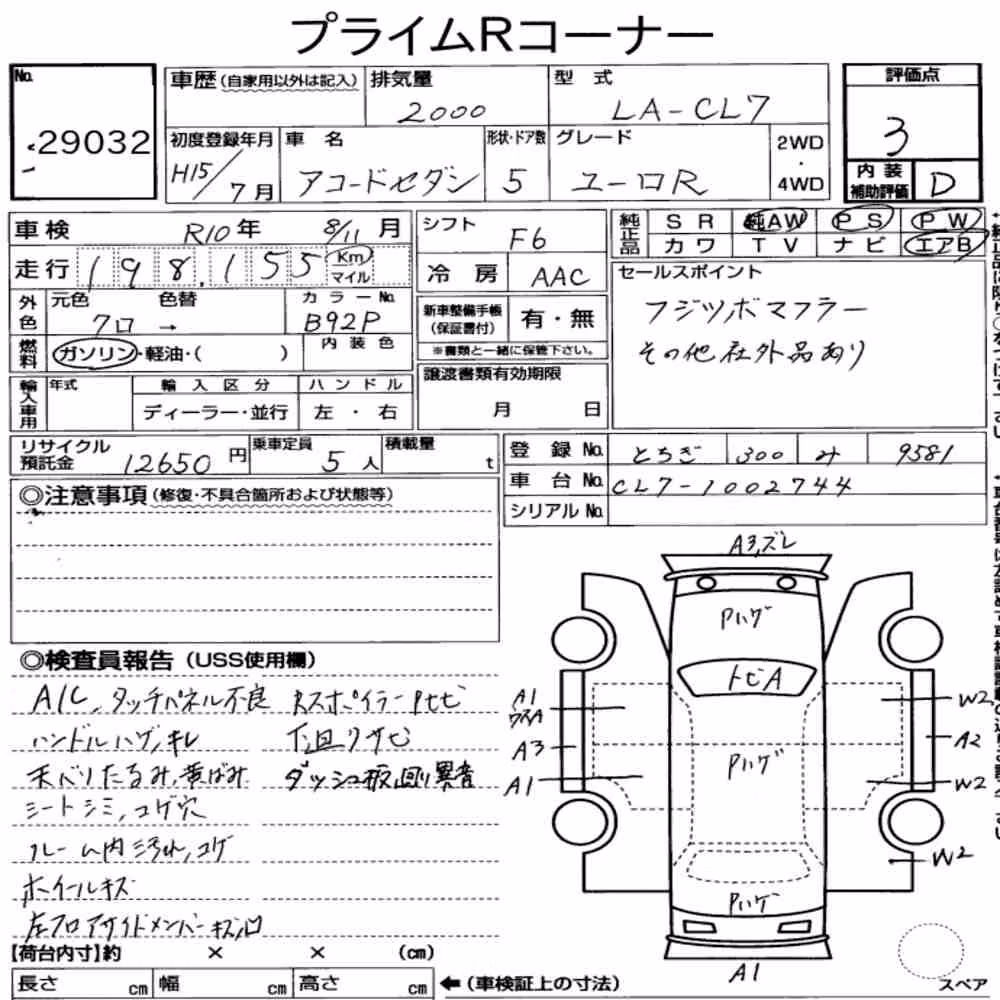 プライムRコーナー
No. 29032
車歴(自家用以外は記入)
排気量 2000
型式 LA-CL7
評価点 3
初度登録年月 H15/7月
車名 アコードセダン
形状・ドア数 5
グレード ユーロR
2WD・4WD
内装補助評価 D
車検 R10年 8/11月
シフト F6
純正品 SR 純AW PS PW
カワ TV ナビ エアB
走行 198,155 Km マイル
冷房 AAC
セールスポイント
フジツボマフラー
その他社外品あり
外色 元色 色替 カラーNo.
クロ → B92P
新車整備手帳(保証書付) 有・無
※書類と一緒に保管下さい。
燃料 ガソリン・軽油・( )
内装色
輸入車用 年式 輸入区分 ハンドル
ディーラー・並行 左・右
譲渡書類有効期限
月 日
リサイクル預託金 12650円
乗車定員 5人
積載量 t
登録No. とちぎ 300 み 9581
車台No. CL7-1002744
シリアルNo.
◎注意事項(修復・不具合箇所および状態等)
◎検査員報告(USS使用欄)
A/C、タッチパネル不良 Rスポイラー Pセヒ
ハンドルハゲ,キレ 下回りサビ
天ベリたるみ,黄ばみ ダッシュ板剥異音
シートシミ,コゲ穴
フレーム内汚れ,コゲ
ホイールキズ
左フロアサイドメンバーキズ凹
A3,ズレ
Pハゲ
トビA
A1
ワスレA
A3
A1
Pハゲ
W2
A2
W2
W2
Pハゲ
A1
スペア
【荷台内寸】約 × × (cm)
長さ cm 幅 cm 高さ cm
←(車検証上の寸法)